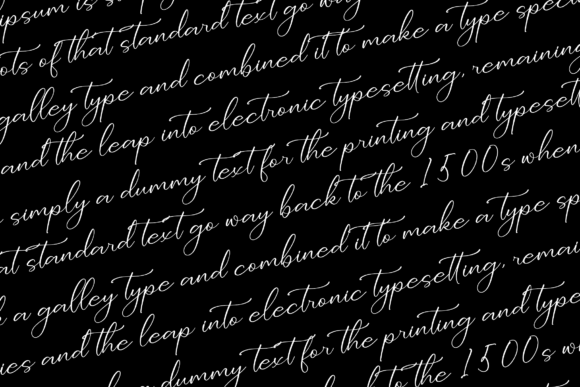 ipsum is simp
ots of that standard text go way
galley type and combined it to make a type speci
and the leap into electronic typesetting, remaining
simply a dummy text for the printing and typesett
at standard text go way back to the 1500s when
a galley type and combined it to make a type spe
ies and the leap into electronic typesetting, remai
dummy text for the printing and type
way back to the 1500s